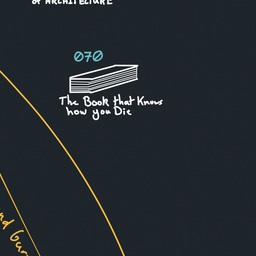 of ARCHITECTURE
070
The Book that Knows
how you Die